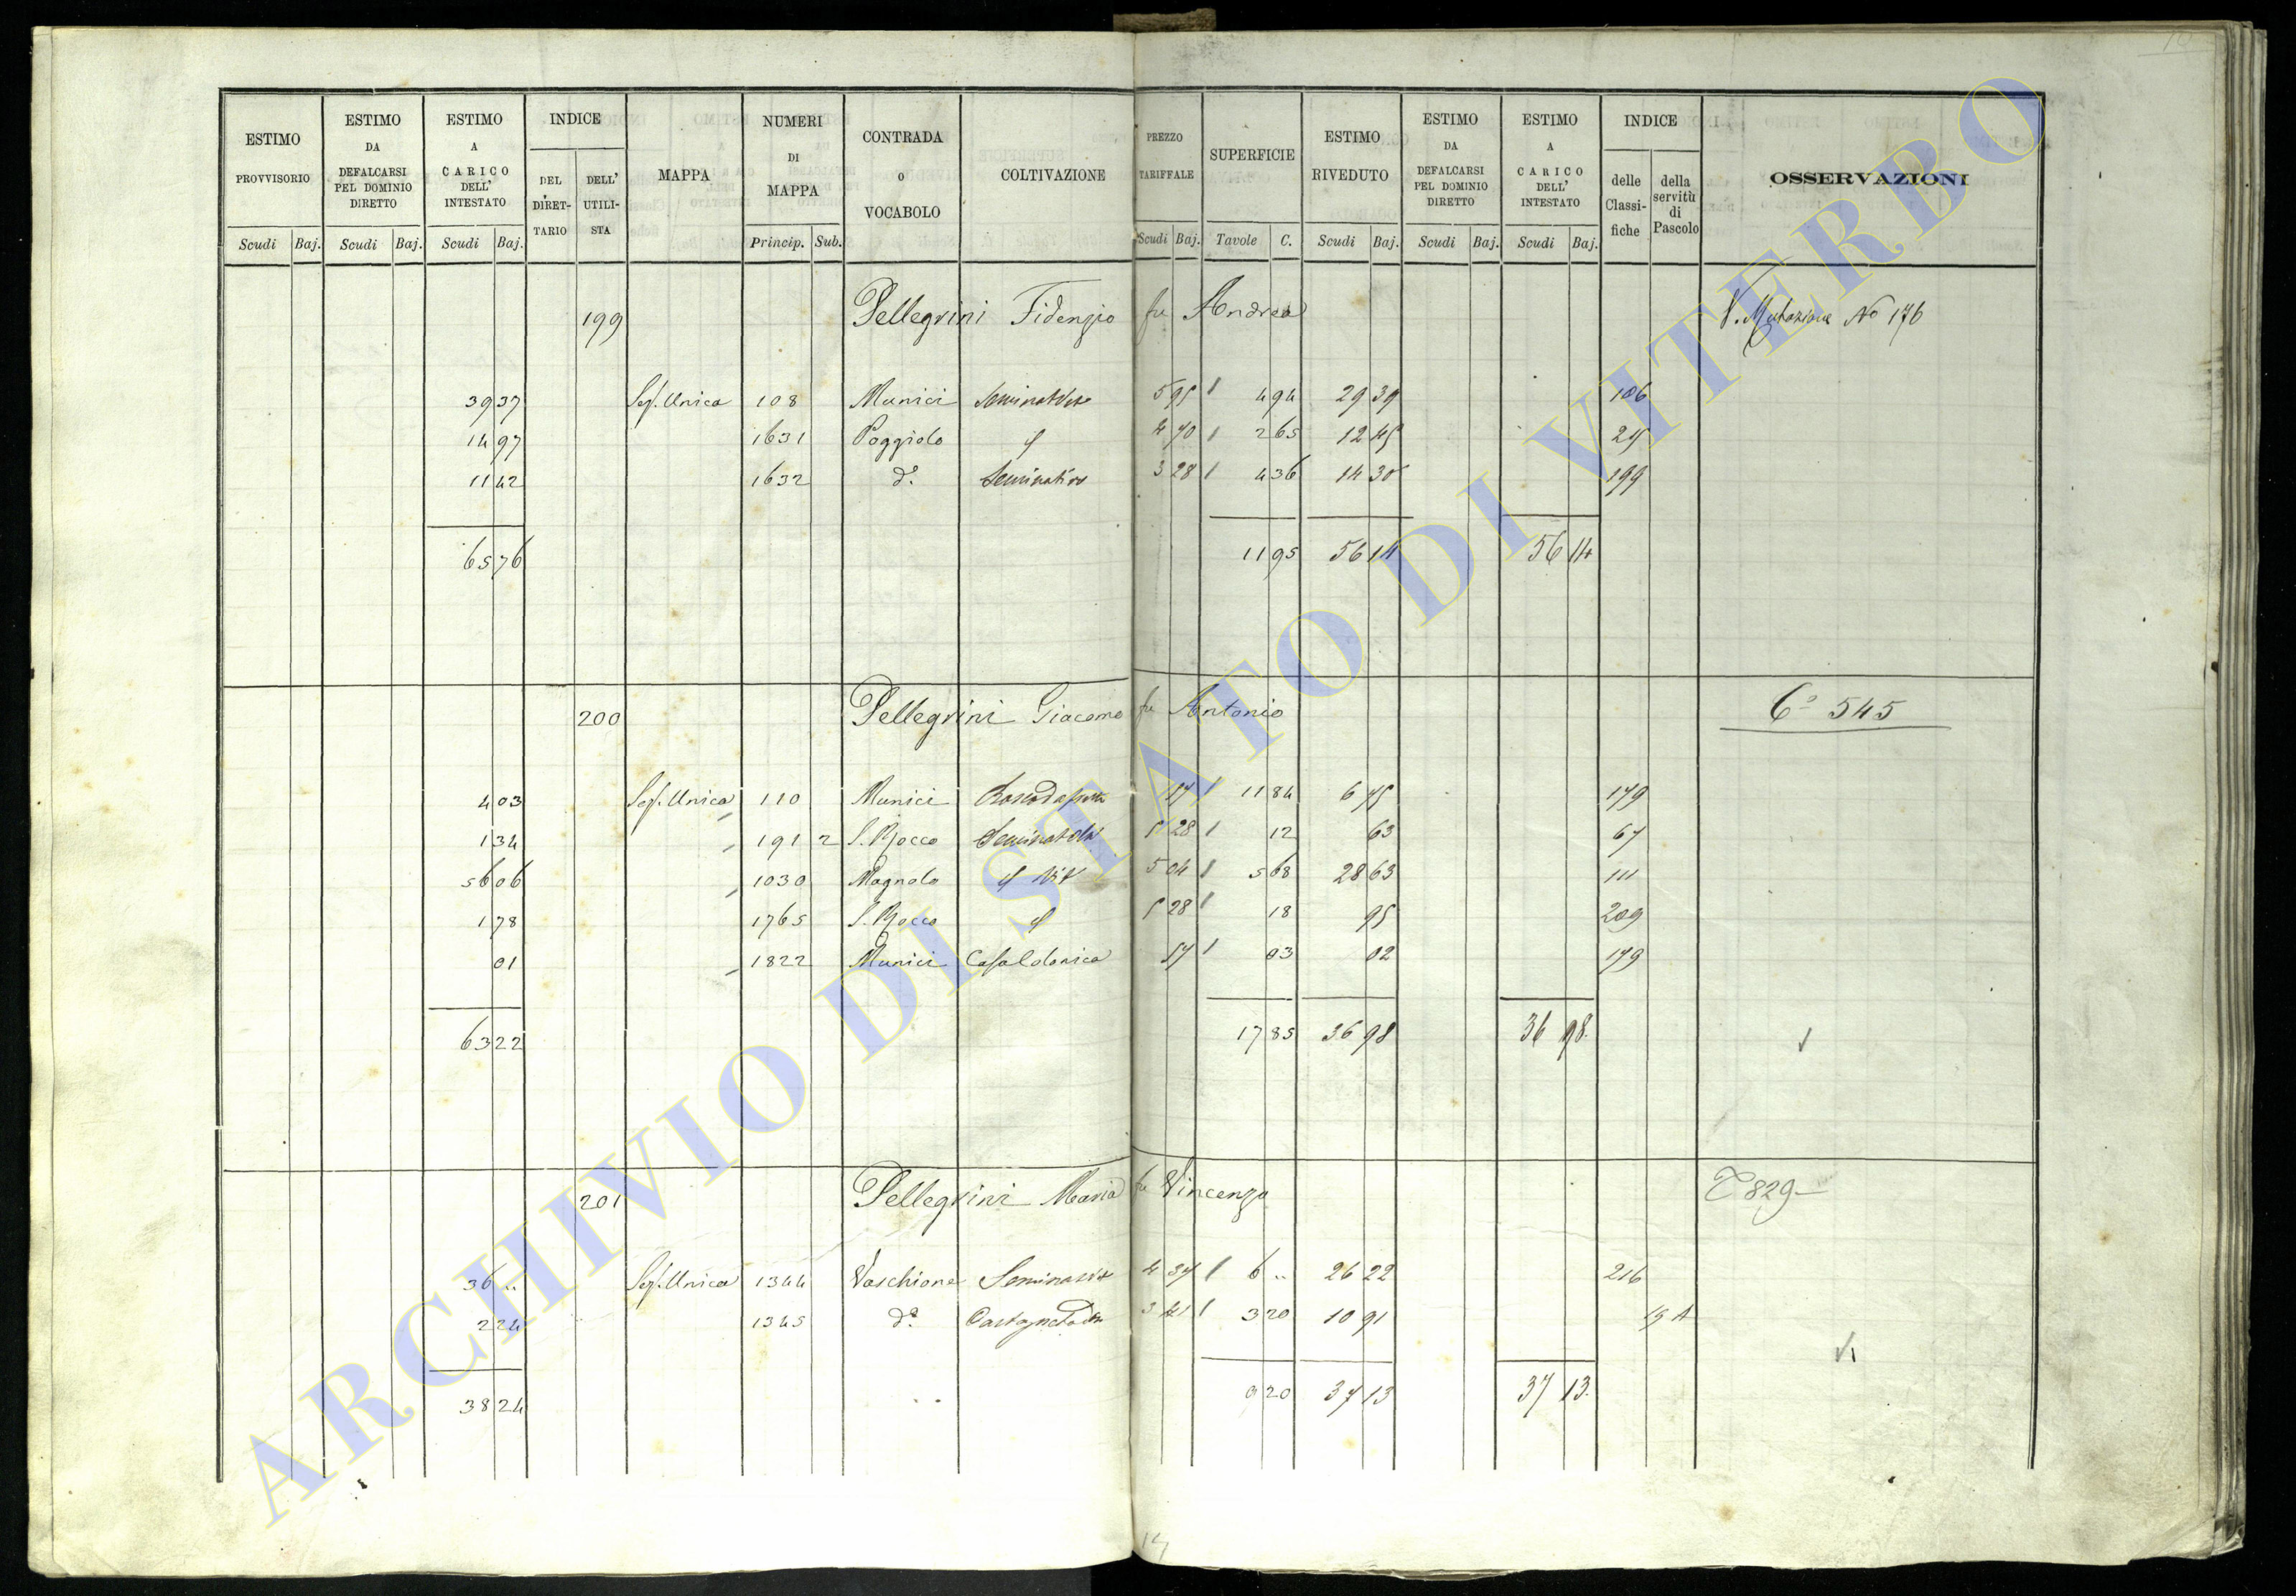 ESTIMO PROVVISORIO | ESTIMO DA DEFALCARSI PEL DOMINIO DIRETTO | ESTIMO A CARICO DELL' INTESTATO | INDICE | MAPPA | NUMERI DI MAPPA | CONTRADA O VOCABOLO | COLTIVAZIONE | PREZZO TARIFFALE | SUPERFICIE | ESTIMO RIVEDUTO | ESTIMO DA DEFALCARSI PEL DOMINIO DIRETTO | ESTIMO A CARICO DELL' INTESTATO | INDICE | OSSERVAZIONI
DEL DIRETTARIO | DELL' UTILISTA | delle Classifiche | della servitù di Pascolo
Scudi | Baj. | Scudi | Baj. | Scudi | Baj. | Princip. | Sub. | Scudi | Baj. | Tavole | C. | Scudi | Baj. | Scudi | Baj. | Scudi | Baj.
199 Pellegrini Fidenzio fu Andrea V. Mutazione No 176
39 37 Sez. Unica 108 Munici 5 95 4 94 29 39 106
14 97 1631 Poggiolo 4 70 2 65 12 45
11 42 1632 d.o Seminativo 3 28 4 36 14 30 199
65 76 11 95 56 14 56 14
200 Pellegrini Giacomo fu Antonio 545
4 03 Sez. Unica 110 Munici 57 11 84 6 75 179
1 34 191 2 S. Rocco 5 28 12 63 67
56 06 1030 Magnolo 5 04 5 68 28 63 111
1 78 1765 S. Rocco 5 28 18 95 209
01 1822 Munici Casa Colonica 57 03 02 179
63 22 17 85 36 98 36 98
201 Pellegrini Maria fu Vincenzo 829
36 .. Sez. Unica 1344 Vaschione 4 37 6 .. 26 22 216
2 24 1345 d.o 3 41 3 20 10 91
38 24 9 20 37 13 37 13
ARCHIVIO DI STATO DI VITERBO